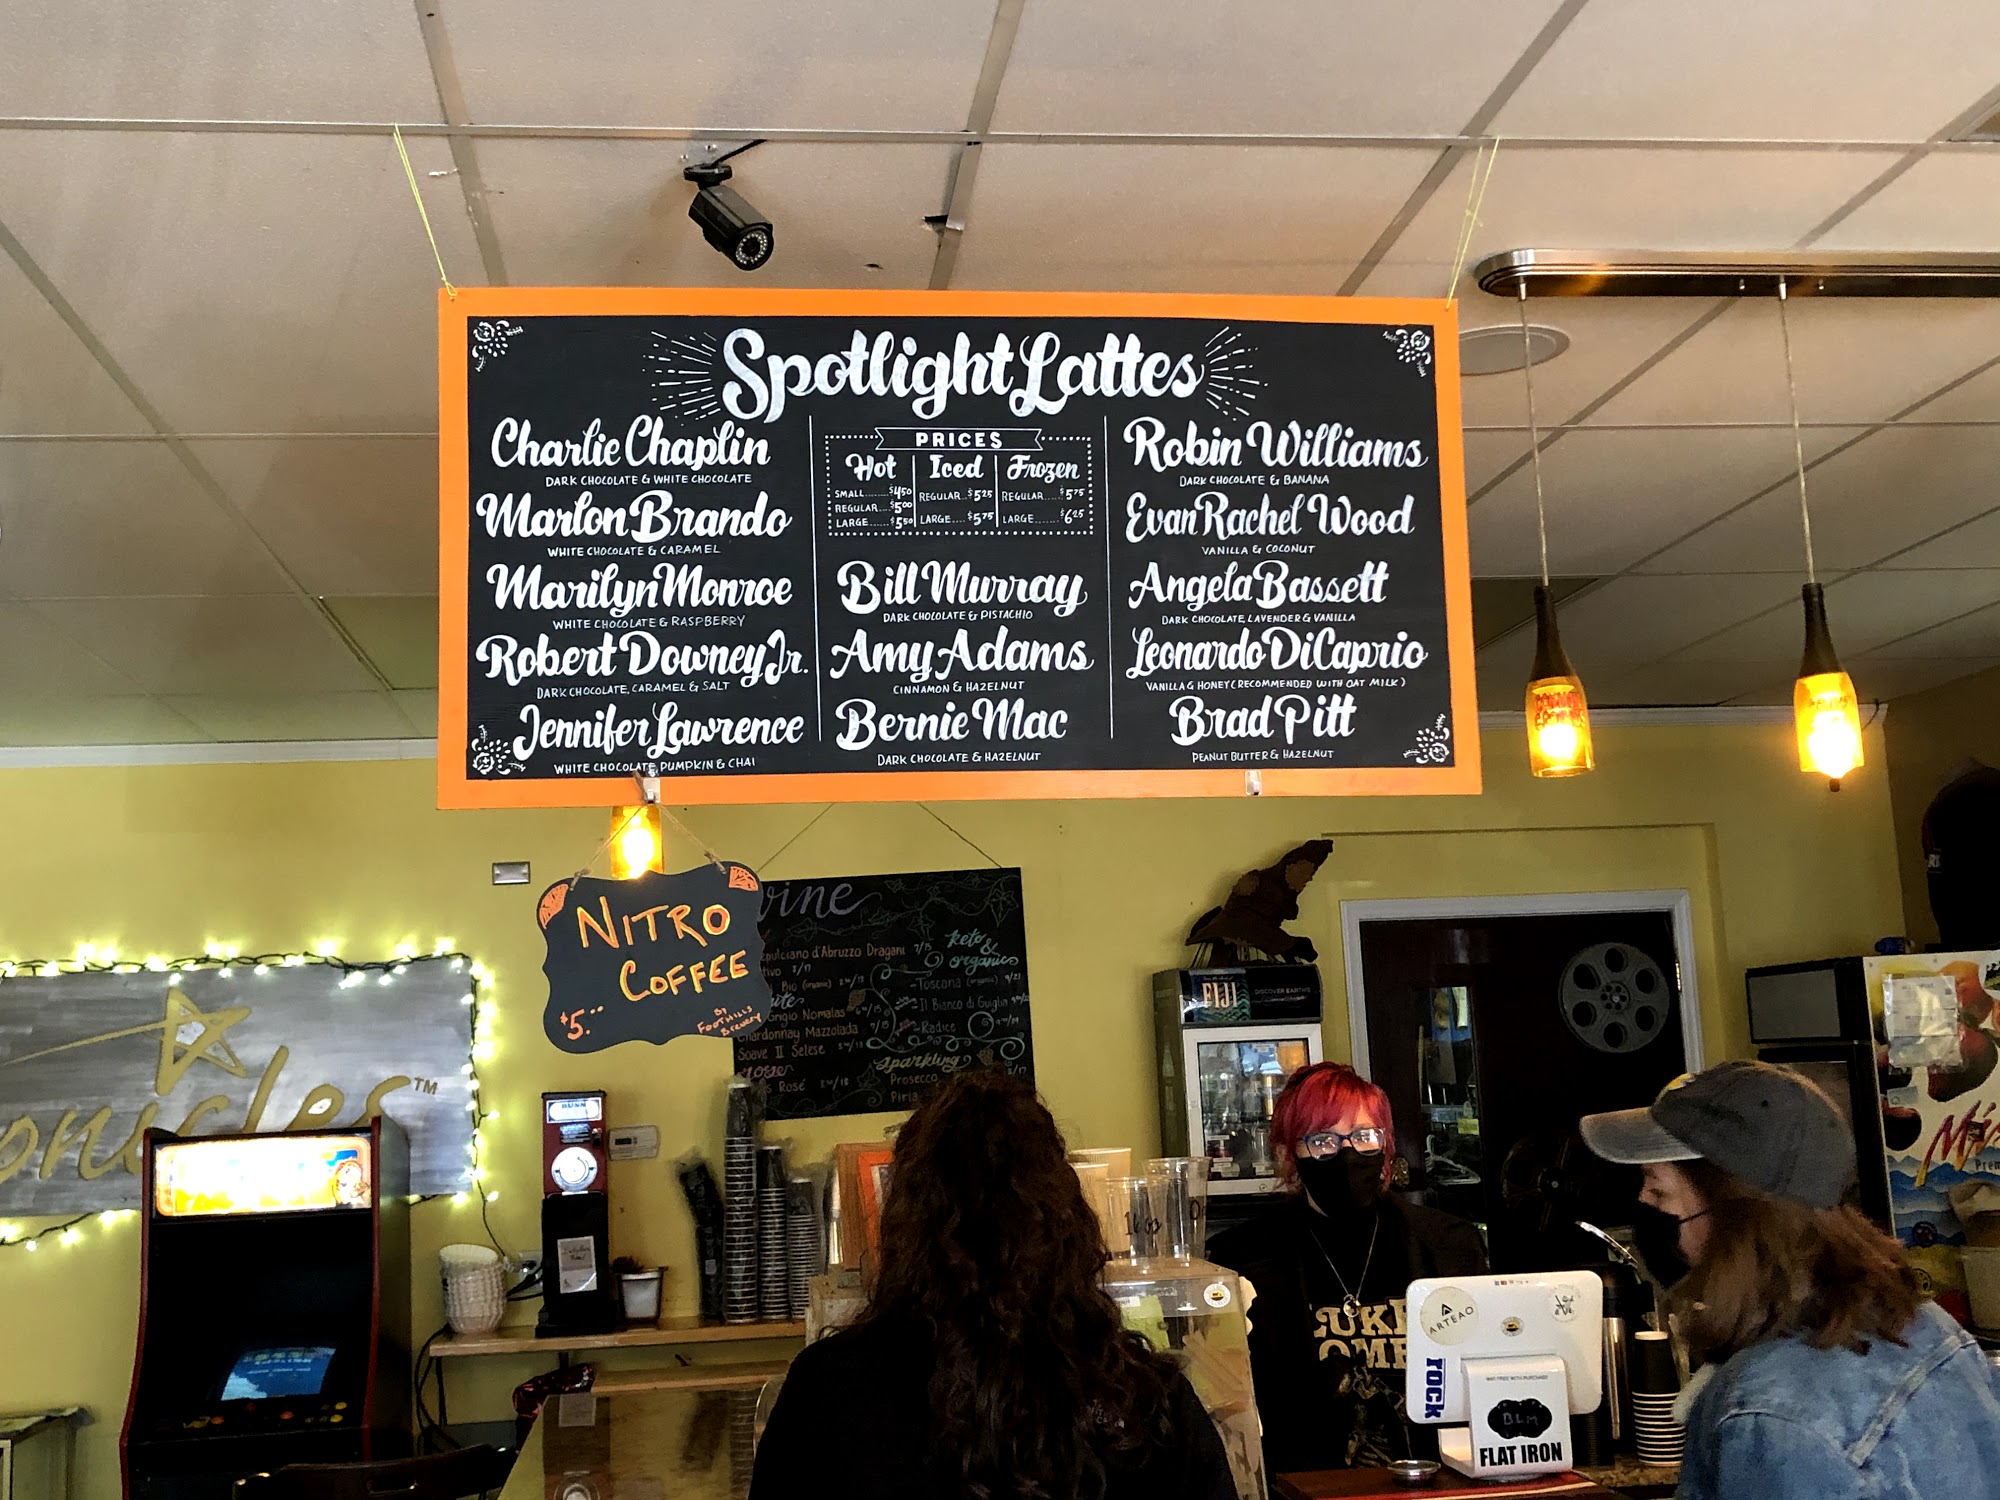 Spotlight Lattes
Charlie Chaplin
DARK CHOCOLATE & WHITE CHOCOLATE
Marlon Brando
WHITE CHOCOLATE & CARAMEL
Marilyn Monroe
WHITE CHOCOLATE & RASPBERRY
Robert Downey Jr.
DARK CHOCOLATE, CARAMEL & SALT
Jennifer Lawrence
WHITE CHOCOLATE, PUMPKIN & CHAI
PRICES
Hot
SMALL........$4.50
REGULAR...$5.00
LARGE.....$5.50
Iced
REGULAR...$5.25
LARGE....$5.75
Frozen
REGULAR....$5.75
LARGE.......$6.25
Bill Murray
DARK CHOCOLATE & PISTACHIO
Amy Adams
CINNAMON & HAZELNUT
Bernie Mac
DARK CHOCOLATE & HAZELNUT
Robin Williams
DARK CHOCOLATE & BANANA
Evan Rachel Wood
VANILLA & COCONUT
Angela Bassett
DARK CHOCOLATE, LAVENDER & VANILLA
Leonardo DiCaprio
VANILLA & HONEY (RECOMMENDED WITH OAT MILK)
Brad Pitt
PEANUT BUTTER & HAZELNUT
NITRO
COFFEE
$5.
BY
FOOTHILLS
BREWERY
wine
epulciano d'Abruzzo Dragani 7/15
tivo 5/17
Bio (organic)
Grigio Nomalas
Chardonnay Mazzolada 7/15
Soave II Selese
rose
Rosé
keto
&
organic
-Toscana (organic) 9/21
-Il Bianco di Guiglia
-Radice
sparkling
Prosecco
Piria
onicles™
FIJI
DISCOVER EARTH'S
BUNN
16 oz
ARTEAO
TOCK
BLM
FLAT IRON